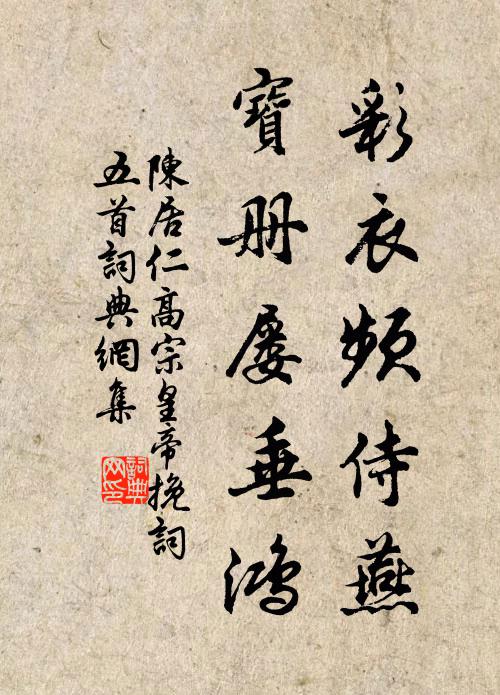 彩衣頻侍燕
寶册屡垂鴻
陳居仁高宗皇帝挽詞
五首詞典網集
詞典网印